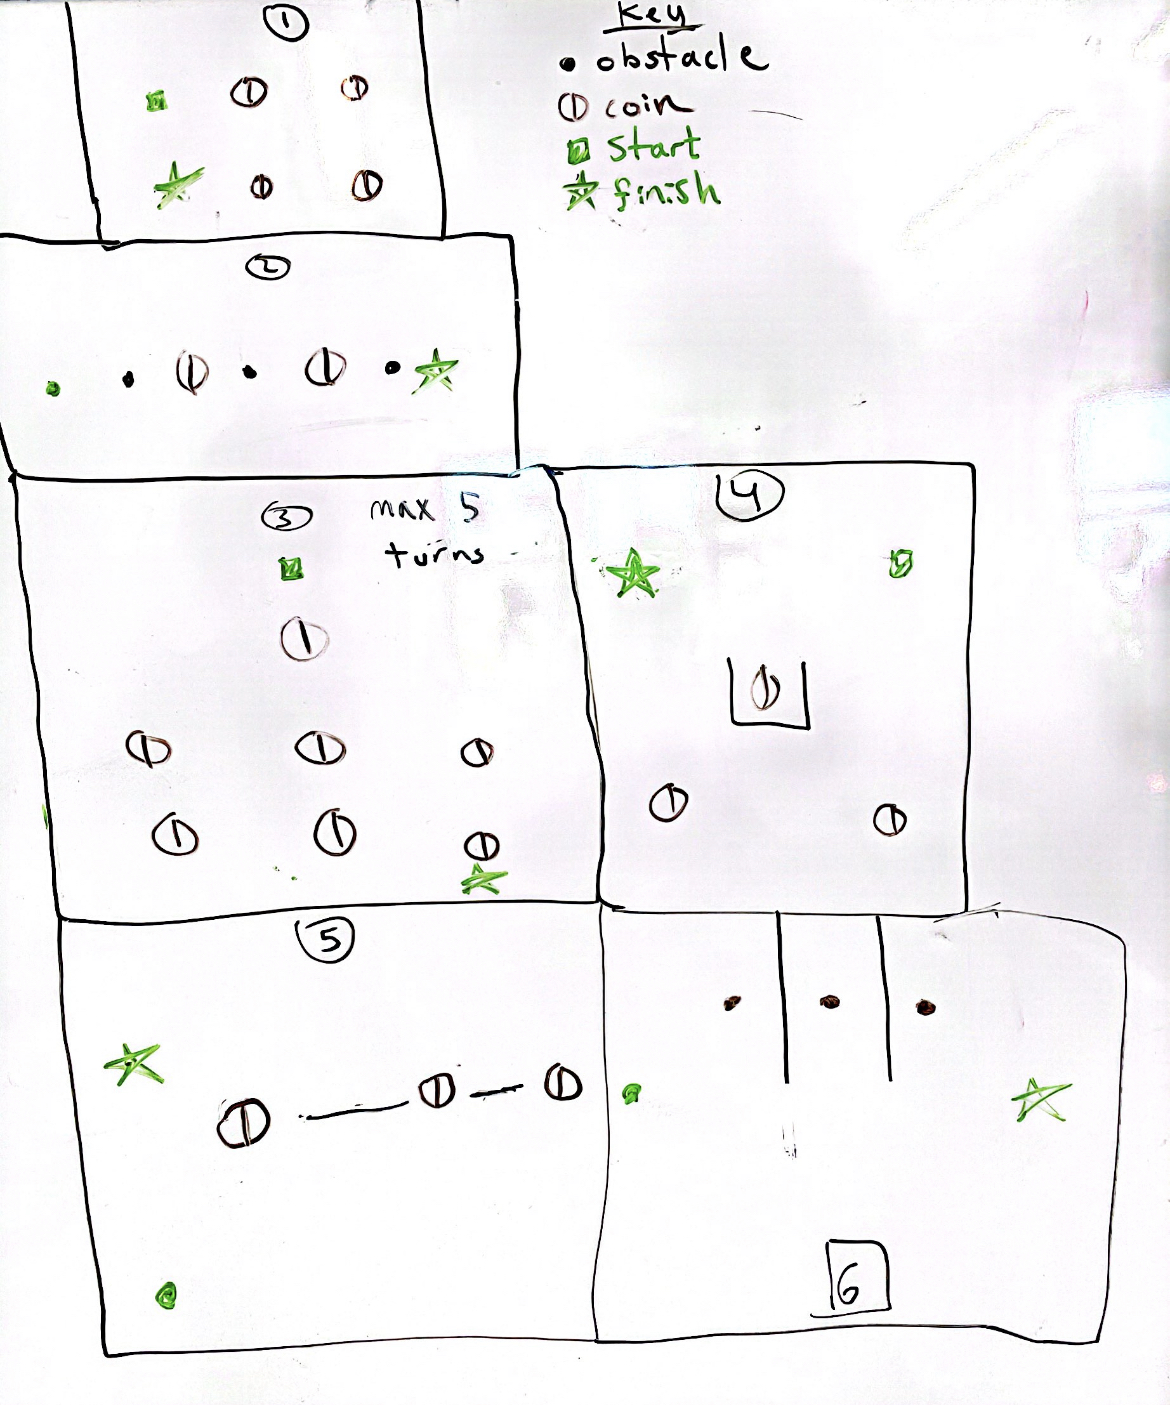 1
Key
obstacle
coin
start
finish
2
3 max 5
turns
4
5
6